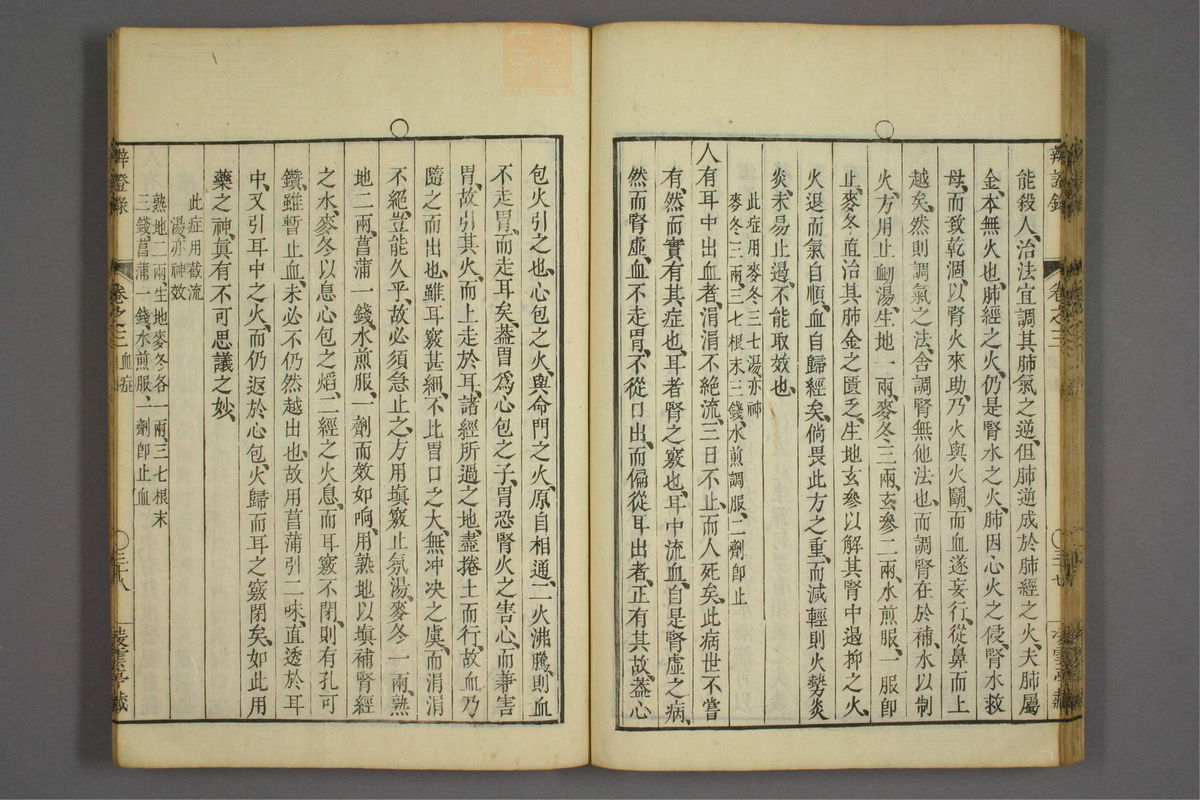 能殺人、治法宜調其肺氣之逆、但肺逆成於肺經之火、夫肺屬
金、本無火也、肺經之火、仍是腎水之火、肺因心火之侵、腎水救
母、而致乾涸、以腎火來助、乃火與火鬭、而血遂妄行、從鼻而上
越矣、然則調氣之法、舍調腎無他法也、而調腎在於補水以制
火、方用止衂湯、生地一兩、麥冬三兩、玄參二兩、水煎服、一服卽
止、麥冬直治其肺金之匱乏、生地玄參以解其腎中遏抑之火、
火退而氣自順、血自歸經矣、倘畏此方之重、而減輕則火勢炎
炎、未易止遏、不能取效也、
此症用麥冬三七湯亦神
麥冬三兩、三七根末三錢、水煎調服、二劑卽止
人有耳中出血者、涓涓不絶流、三日不止、而人死矣、此病世不嘗
有、然而實有其症也、耳者腎之竅也、耳中流血、自是腎虛之病、
然而腎虛、血不走胃、不從口出、而偏從耳出者、正有其故、葢心
辨證錄
卷之三
三十七
包火引之也、心包之火、與命門之火、原自相通、二火沸騰、則血
不走胃、而走耳矣、葢胃爲心包之子、胃恐腎火之害心、而兼害
胃、故引其火、而上走於耳、諸經所過之地、盡捲土而行、故血乃
隨之而出也、雖耳竅甚細、不比胃口之大、無冲决之虞、而涓涓
不絕、豈能久乎、故必須急止之、方用塡竅止氛湯、麥冬一兩、熟
地二兩、菖蒲一錢、水煎服、一劑而效如响、用熟地以塡補腎經
之水、麥冬以息心包之熖、二經之火息、而耳竅不閉、則有孔可
鑽、雖暫止血、未必不仍然越出也、故用菖蒲引二味、直透於耳
中、又引耳中之火、而仍返於心包、火歸而耳之竅閉矣、如此用
藥之神、眞有不可思議之妙、
此症用截流
湯亦神效
熟地二兩、生地麥冬各一兩、三七根末
三錢、菖蒲一錢、水煎服、一劑卽止血
辨證錄
卷之三 血症
三十八